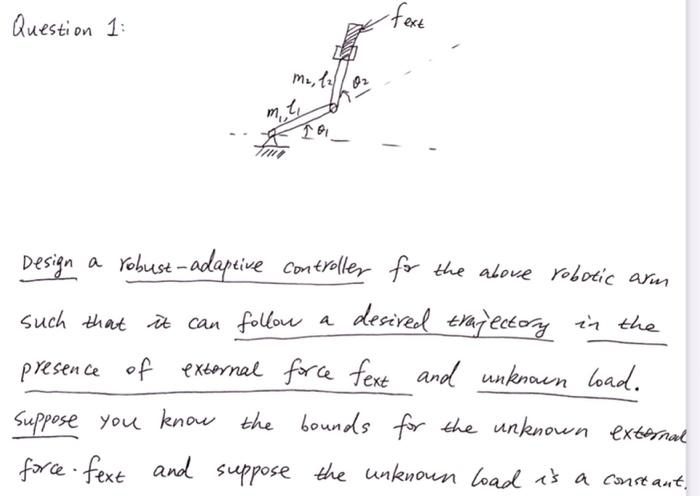 Question 1:
fext
m2, l2
θ2
m1, l1
θ1
Design a robust-adaptive controller for the above robotic arm
such that it can follow a desired trajectory in the
presence of external force fext and unknown load.
Suppose you know the bounds for the unknown external
force. fext and suppose the unknown load is a constant.